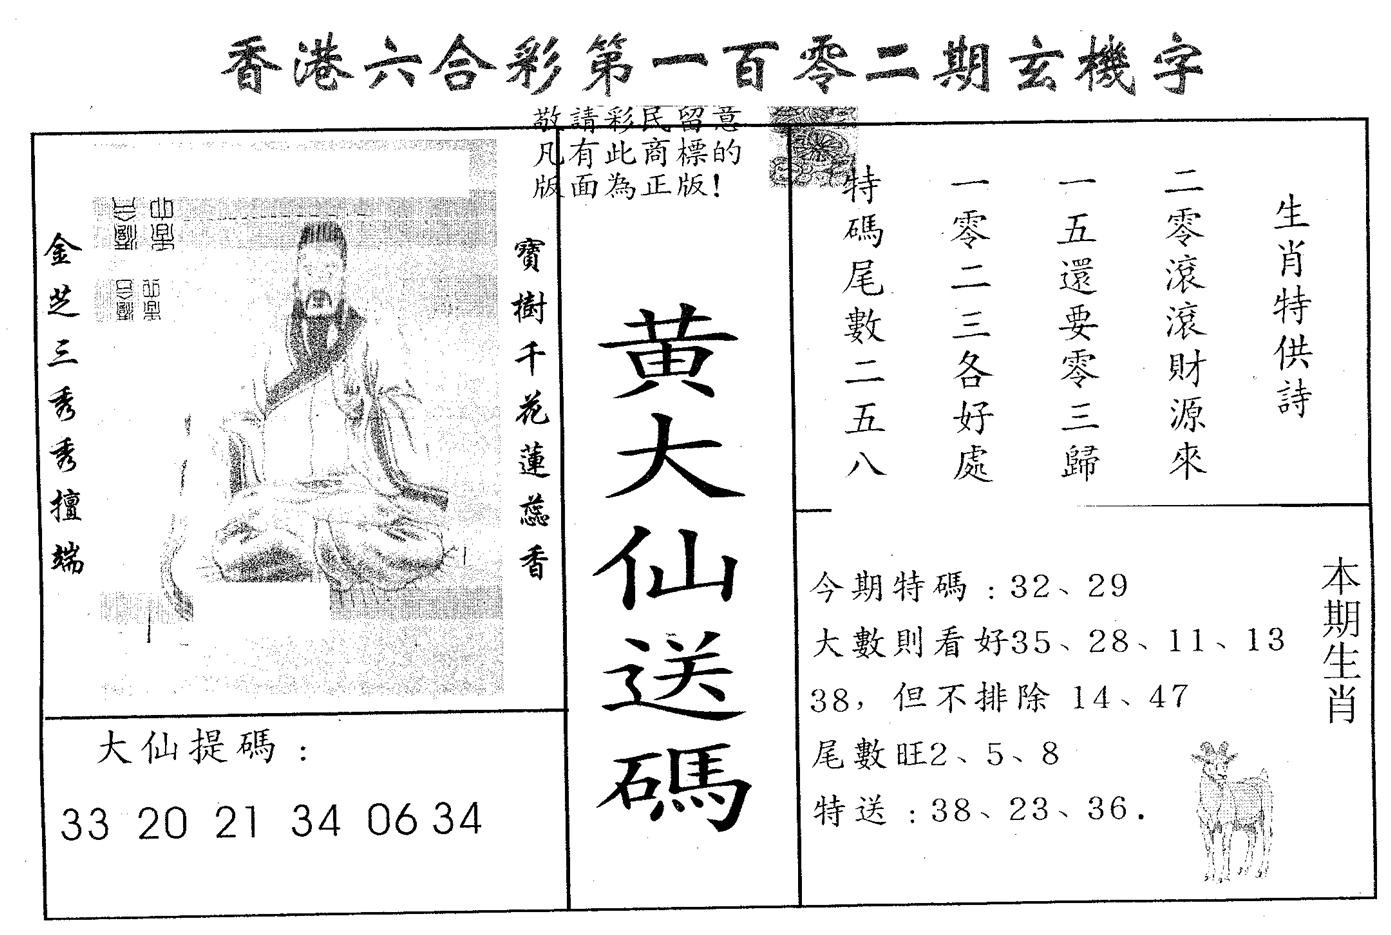 香港六合彩第一百零二期玄機字
敬請彩民留意
凡有此商標的
版面為正版!
寶樹千花蓮蕊香
金芝三秀秀擅端
大仙提碼:
33 20 21 34 06 34
黄大仙送碼
生肖特供詩
二零滾滾財源來
一五還要零三歸
一零二三各好處
特碼尾數二五八
本期生肖
今期特碼:32、29
大數則看好35、28、11、13
38,但不排除 14、47
尾數旺2、5、8
特送:38、23、36.